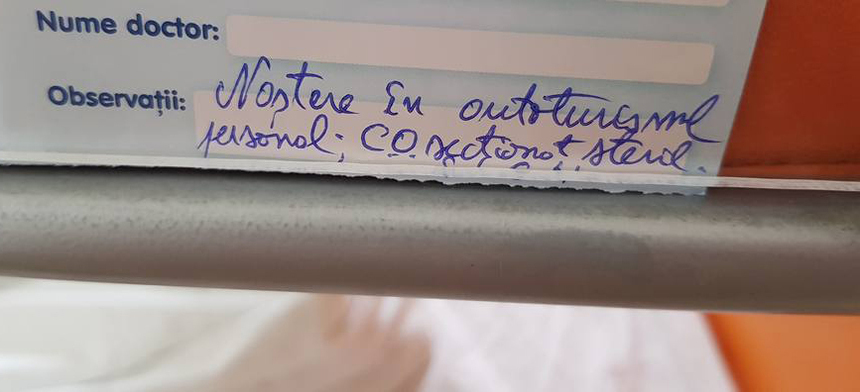 Nume doctor:
Observații: Naștere în autoturismul
personal; CO secționat steril.